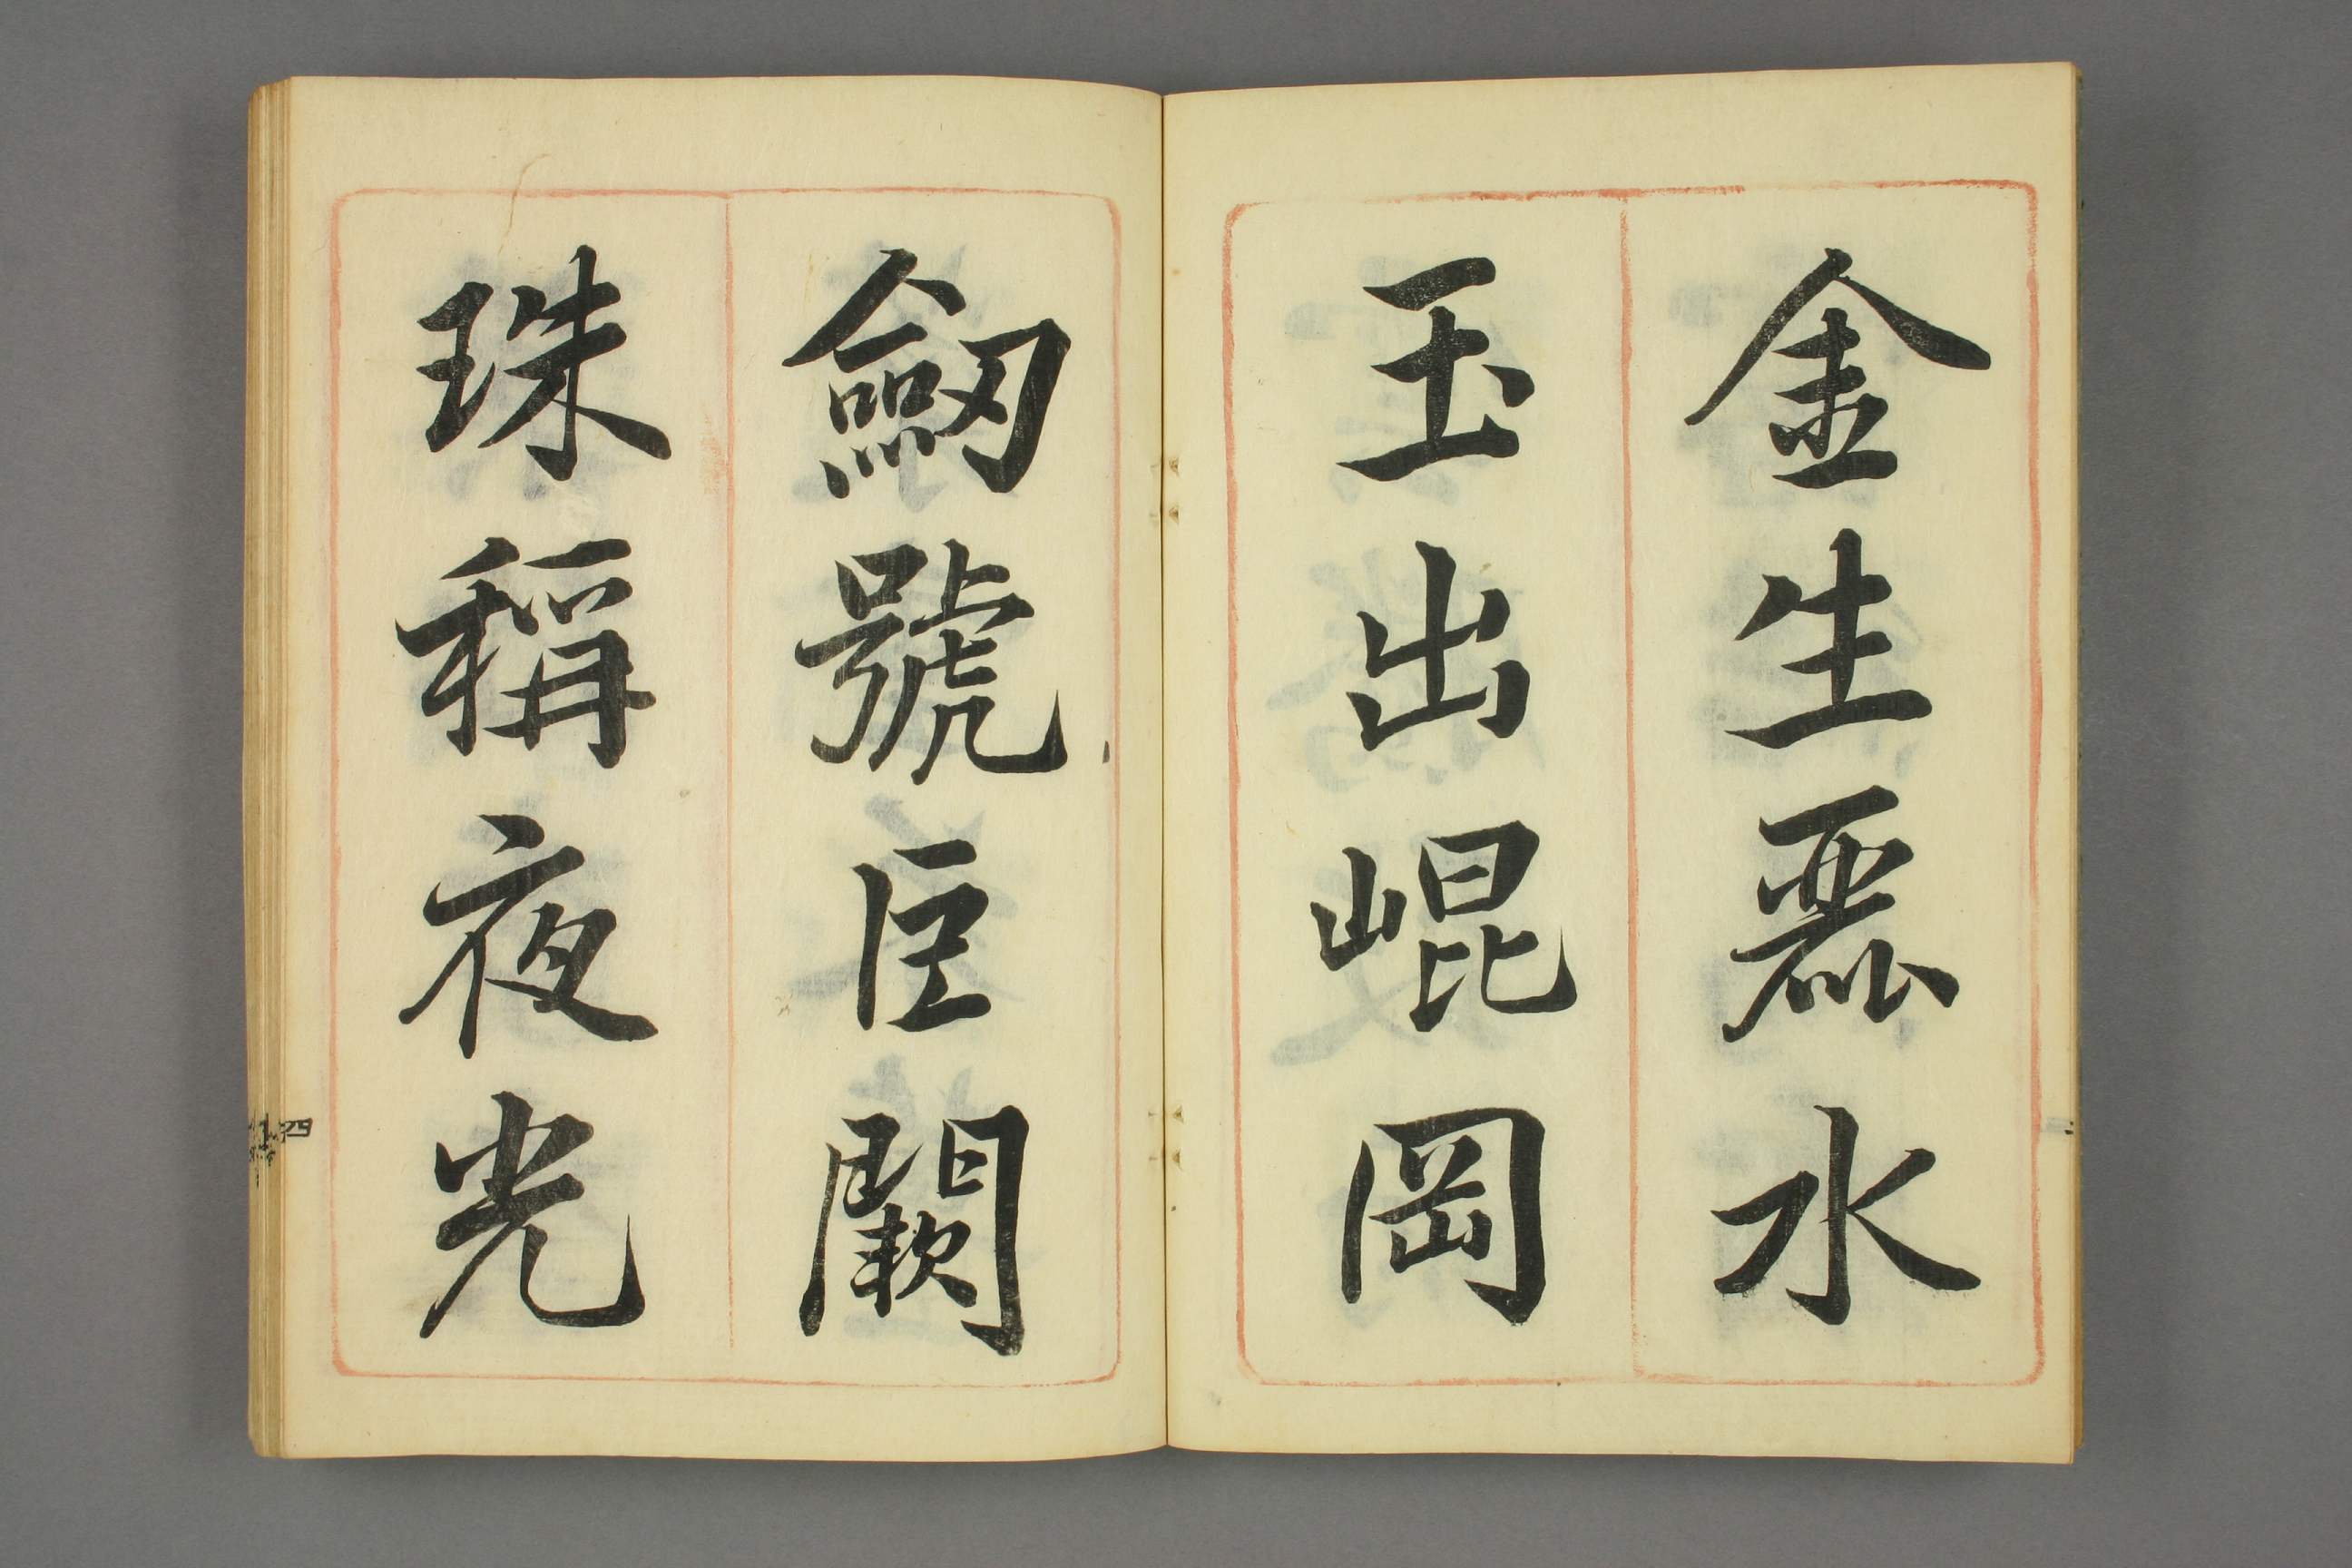 金生麗水
玉出崐岡
劔號巨闕
珠稱夜光
四